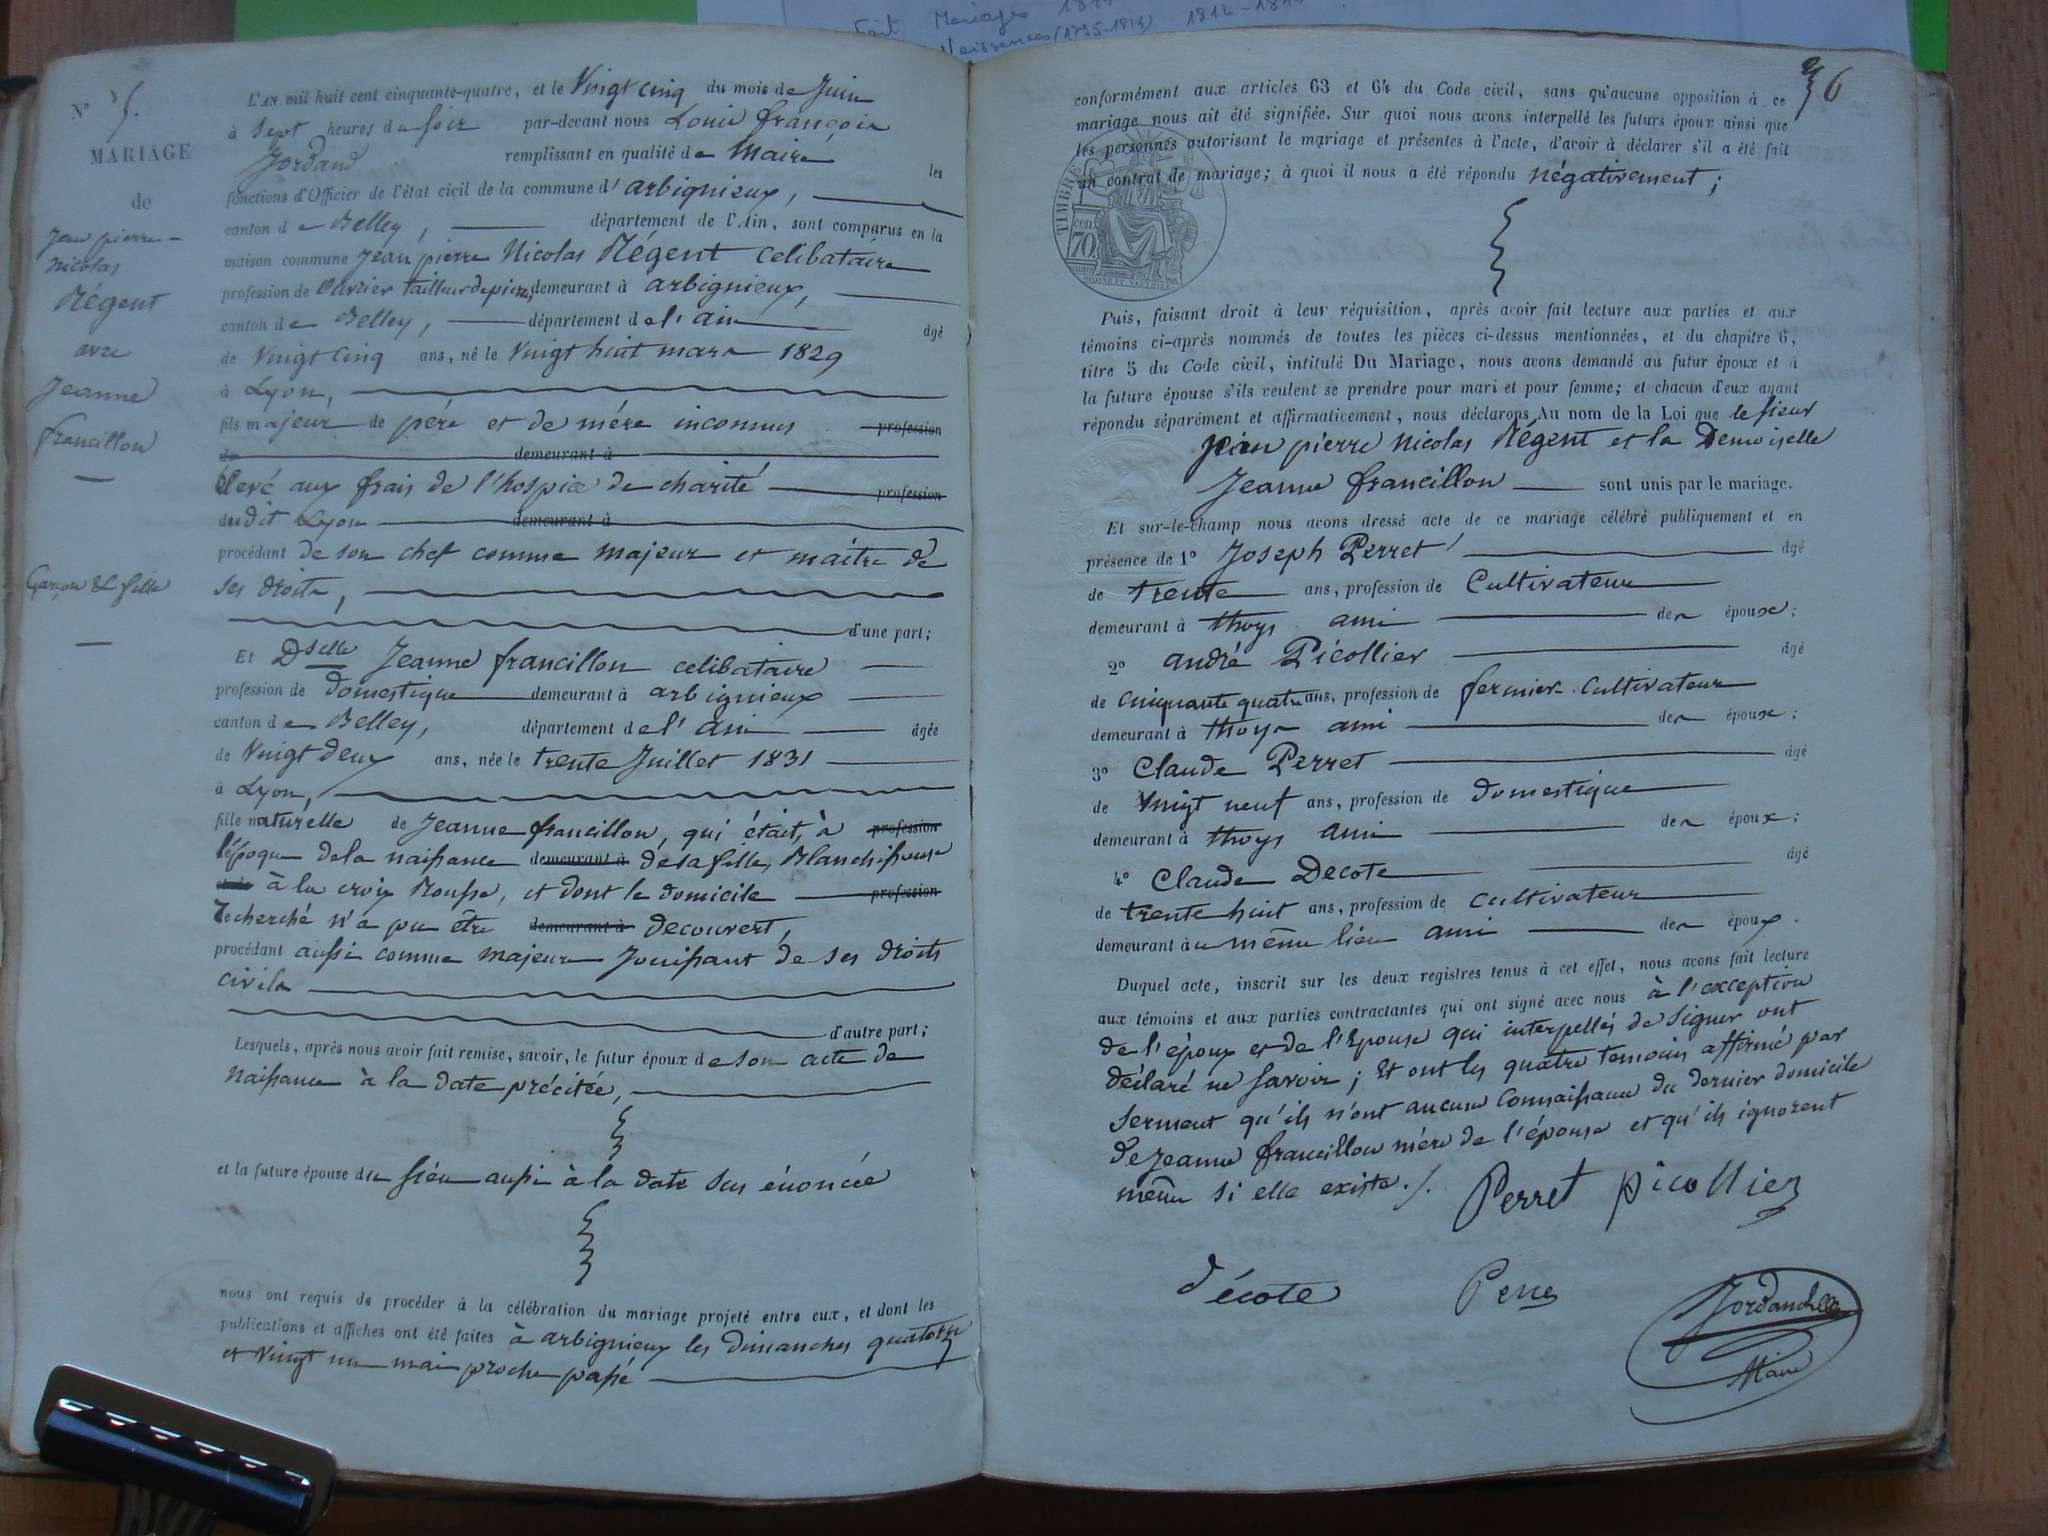 Fait Mariages
Naissances (1793-1814) 1812-
N° 5.
MARIAGE
de
Jean pierre-
nicolas
Régent
avec
Jeanne
francillon
Garçon & fille
L'AN mil huit cent cinquante-quatre, et le Vingt cinq du mois de Juin
à Sept heures du Soir par-devant nous Louis françois
Jordand remplissant en qualité de Maire les
fonctions d'Officier de l'état civil de la commune d'arbignieux,
canton de Belley, département de l'Ain, sont comparus en la
maison commune jean pierre Nicolas Régent celibataire
profession de Ouvrier tailleur de pierre, demeurant à arbignieux,
canton de Belley, département de l'ain âgé
de Vingt cinq ans, né le Vingt huit mars 1829
à Lyon,
fils majeur de père et de mère inconnus profession
de demeurant à
élevé aux frais de l'hospice de charité profession
dudit Lyon demeurant à
procédant de son chef comme majeur et maitre de
ses droits,
d'une part;
Et Dselle Jeanne francillon celibataire
profession de domestique demeurant à arbignieux
canton de Belley, département de l'ain âgée
de Vingt deux ans, née le trente Juillet 1831
à Lyon,
fille naturelle de Jeanne francillon, qui était, à profession
l'époque de la naissance demeurant à de sa fille, Blanchisseuse
et de à la croix Rousse, et dont le domicile profession
recherché n'a pu être demeurant à decouvert,
procédant aussi comme majeure Jouissant de ses droits
civils
d'autre part;
Lesquels, après nous avoir fait remise, savoir, le futur époux de son acte de
Naissance à la date précitée,
et la future épouse du sien aussi à la date sus énoncée
nous ont requis de procéder à la célébration du mariage projeté entre eux, et dont les
publications et affiches ont été faites à arbignieux les dimanches quatorze
et Vingt un mai proche passé
76
conformément aux articles 63 et 64 du Code civil, sans qu'aucune opposition à ce
mariage nous ait été signifiée. Sur quoi nous avons interpellé les futurs époux ainsi que
les personnes autorisant le mariage et présentes à l'acte, d'avoir à déclarer s'il a été fait
un contrat de mariage; à quoi il nous a été répondu négativement;
TIMBRE
70
Puis, faisant droit à leur réquisition, après avoir fait lecture aux parties et aux
témoins ci-après nommés de toutes les pièces ci-dessus mentionnées, et du chapitre 6,
titre 5 du Code civil, intitulé Du Mariage, nous avons demandé au futur époux et à
la future épouse s'ils veulent se prendre pour mari et pour femme; et chacun d'eux ayant
répondu séparément et affirmativement, nous déclarons Au nom de la Loi que le sieur
Jean pierre nicolas Régent et la Demoiselle
Jeanne francillon sont unis par le mariage.
Et sur-le-champ nous avons dressé acte de ce mariage célébré publiquement et en
présence de 1° Joseph Perret âgé
de trente ans, profession de Cultivateur
demeurant à thoys ami des époux;
2° andré Picollier âgé
de cinquante quatre ans, profession de fermier cultivateur
demeurant à thoys ami des époux;
3° Claude Perret âgé
de Vingt neuf ans, profession de Domestique
demeurant à thoys ami des époux;
4° Claude Decote âgé
de trente huit ans, profession de cultivateur
demeurant au même lieu ami des époux.
Duquel acte, inscrit sur les deux registres tenus à cet effet, nous avons fait lecture
aux témoins et aux parties contractantes qui ont signé avec nous à l'exception
de l'époux et de l'Epouse qui interpellés de signer ont
déclaré ne savoir; Et ont les quatre temoins affirmé par
serment qu'ils n'ont aucune connaissance du dernier domicile
de jeanne francillon mère de l'épouse et qu'ils ignorent
même si elle existe./. Perret picollier
décote
Maire